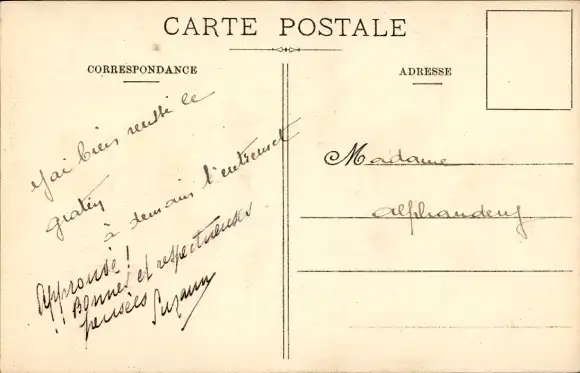 CARTE POSTALE
CORRESPONDANCE
ADRESSE
J'ai bien reussi le
gratin
à demain l'entremet
Approuvé !
!! Bonnes et respectueuses
pensées
Suzann
Madame
Alphandery